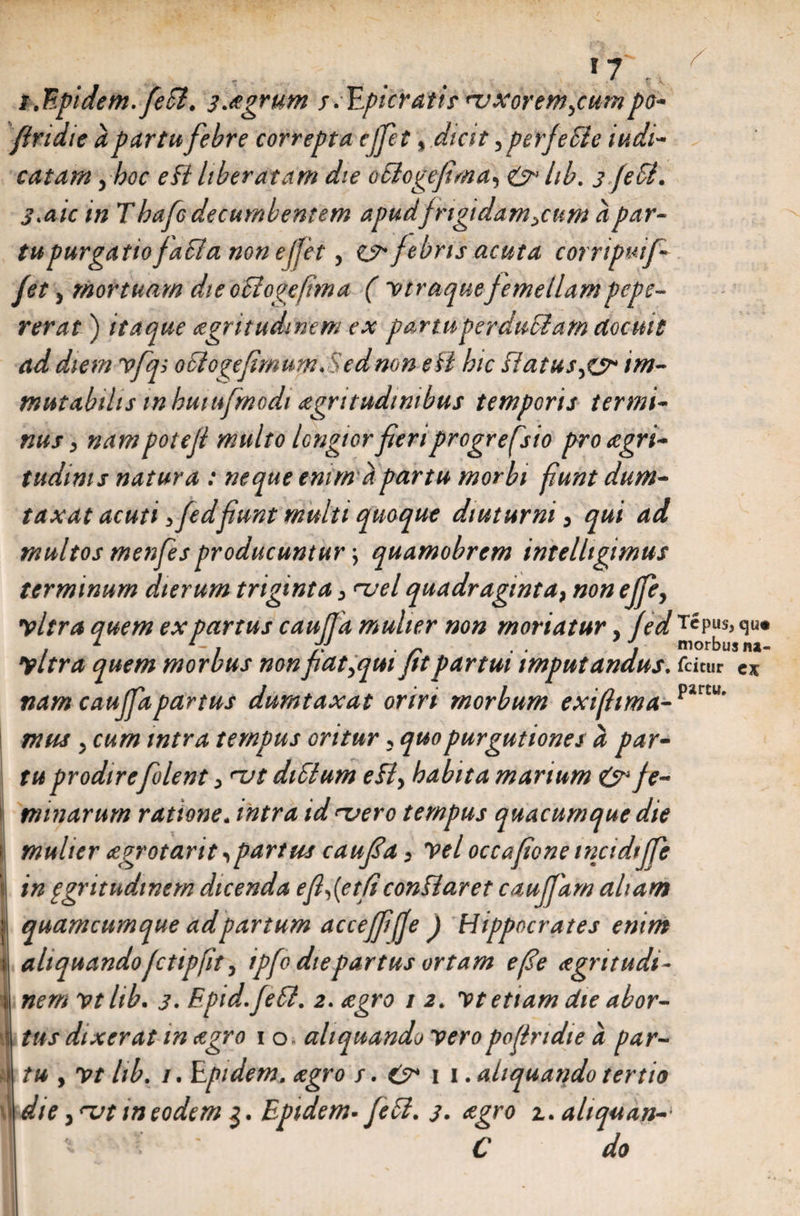 17
1. Epidem. ſect. 3. ægrum 5. Epicratis vxorem, cum po-
ſtridie à partu febre correpta eſſet, dicit, perfecte iudi-
catam, hoc eſt liberatam die octogeſima, & lib. 3 ſect.
3. aic in Thaſo decumbentem apud frigidam, cum à par-
tu purgatio facta non eſſet, & febris acuta corripuiſ-
ſet, mortuam die octogeſima ( vtraque femellam pepe-
rerat ) itaque ægritudinem ex partu perductam docuit
ad diem vſqꝫ octogeſimum. Sed non eſt hic ſtatus, & im-
mutabilis in huiuſmodi ægritudinibus temporis termi-
nus, nam poteſt multo longior fieri progreſsio pro ægri-
tudinis natura : neque enim à partu morbi fiunt dum-
taxat acuti, ſed fiunt multi quoque diuturni, qui ad
multos menſes producuntur; quamobrem intelligimus
terminum dierum triginta, vel quadraginta, non eſſe,
vltra quem ex partus cauſſa mulier non moriatur, ſed
vltra quem morbus non fiat, qui ſit partui imputandus.
nam cauſſa partus dumtaxat oriri morbum exiſtima-
mus, cum intra tempus oritur, quo purgutiones à par-
tu prodire ſolent, vt dictum eſt, habita marium & fe-
minarum ratione. intra id vero tempus quacumque die
mulier ægrotarit, partus cauſſa, vel occaſione incidiſſe
in ęgritudinem dicenda eſt, (etſi conſtaret cauſſam aliam
quamcumque ad partum acceſſiſſe ) Hippocrates enim
aliquando ſctipſit, ipſo die partus ortam eſſe ægritudi-
nem vt lib. 3. Epid. ſect. 2. ægro 12. vt etiam die abor-
tus dixerat in ægro 10. aliquando vero poſtridie à par-
tu, vt lib. 1. Epidem. ægro 5. & 11. aliquando tertio
die, vt in eodem 3. Epidem. ſect. 3. ægro 2. aliquan-
C do
Tẽpus, quo
morbus na-
ſcitur ex
partu.